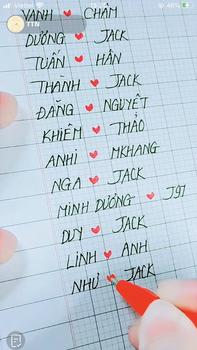 Viettel
46%
TTN
VANH ♥ CHÂM
DƯƠNG ♥ JACK
TUẤN ♥ HÂN
THÀNH ♥ JACK
ĐĂNG ♥ NGUYỆT
KHIÊM ♥ THẢO
ANHI ♥ MKHANG
NGA ♥ JACK
MINH DƯƠNG ♥ J97
DUY ♥ JACK
LINH ♥ ANH
NHƯ ♥ JACK